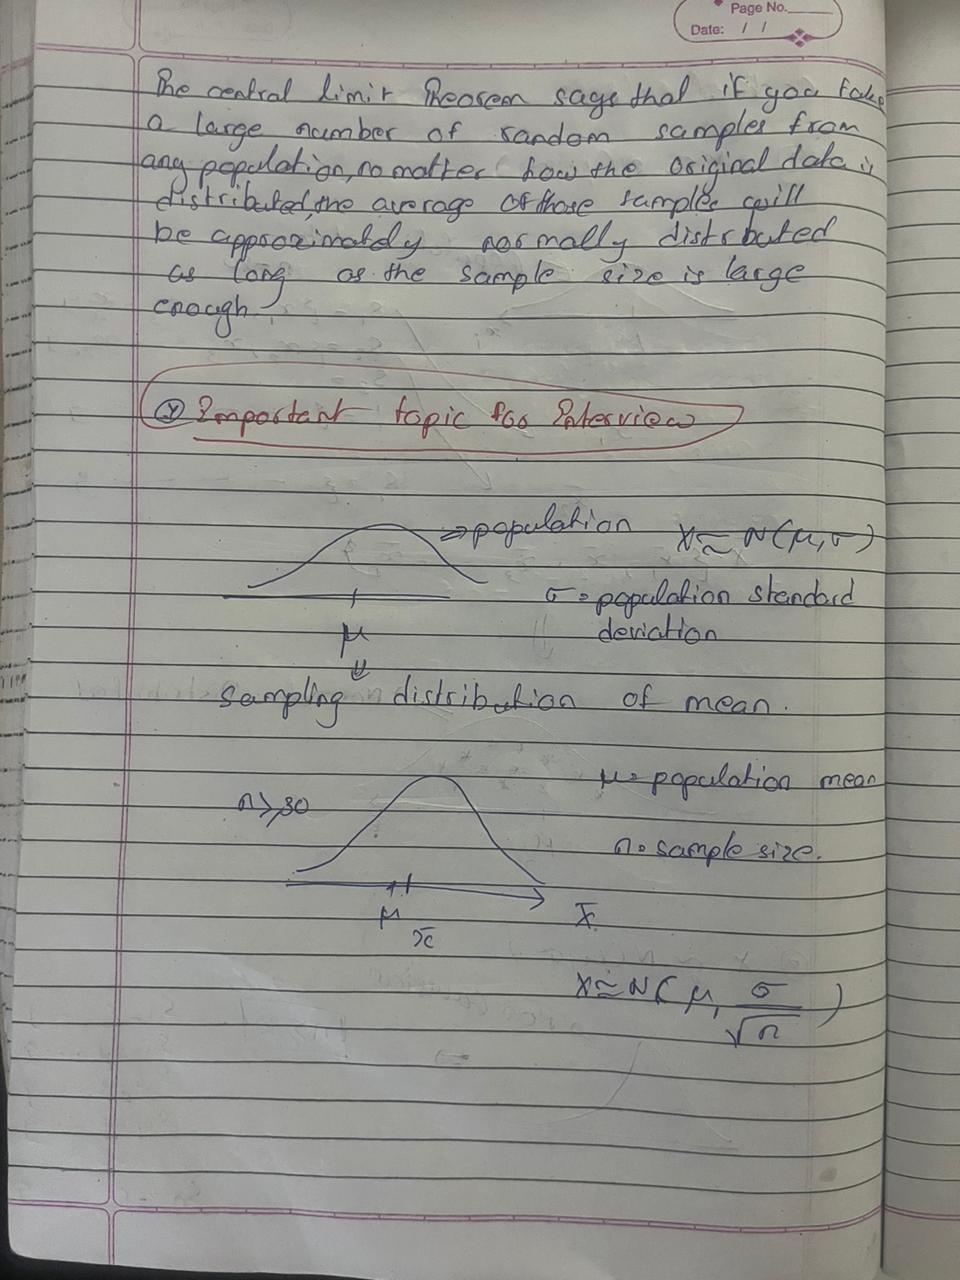 Page No.
Date: / /
The central limit Theorem says that if you take
a large number of random samples from
any population, no matter how the original data is
distributed, the average of those samples will
be approximately normally distrbuted
as long as the sample size is large
enough
Important topic for Interview
⇒ population X ≈ N(μ, σ)
σ = population standard
deviation
μ
Sampling distribution of mean.
μ = population mean
n ≥ 30
n = sample size.
μ x̄ X̄
X ≈ N( μ, σ/√n )